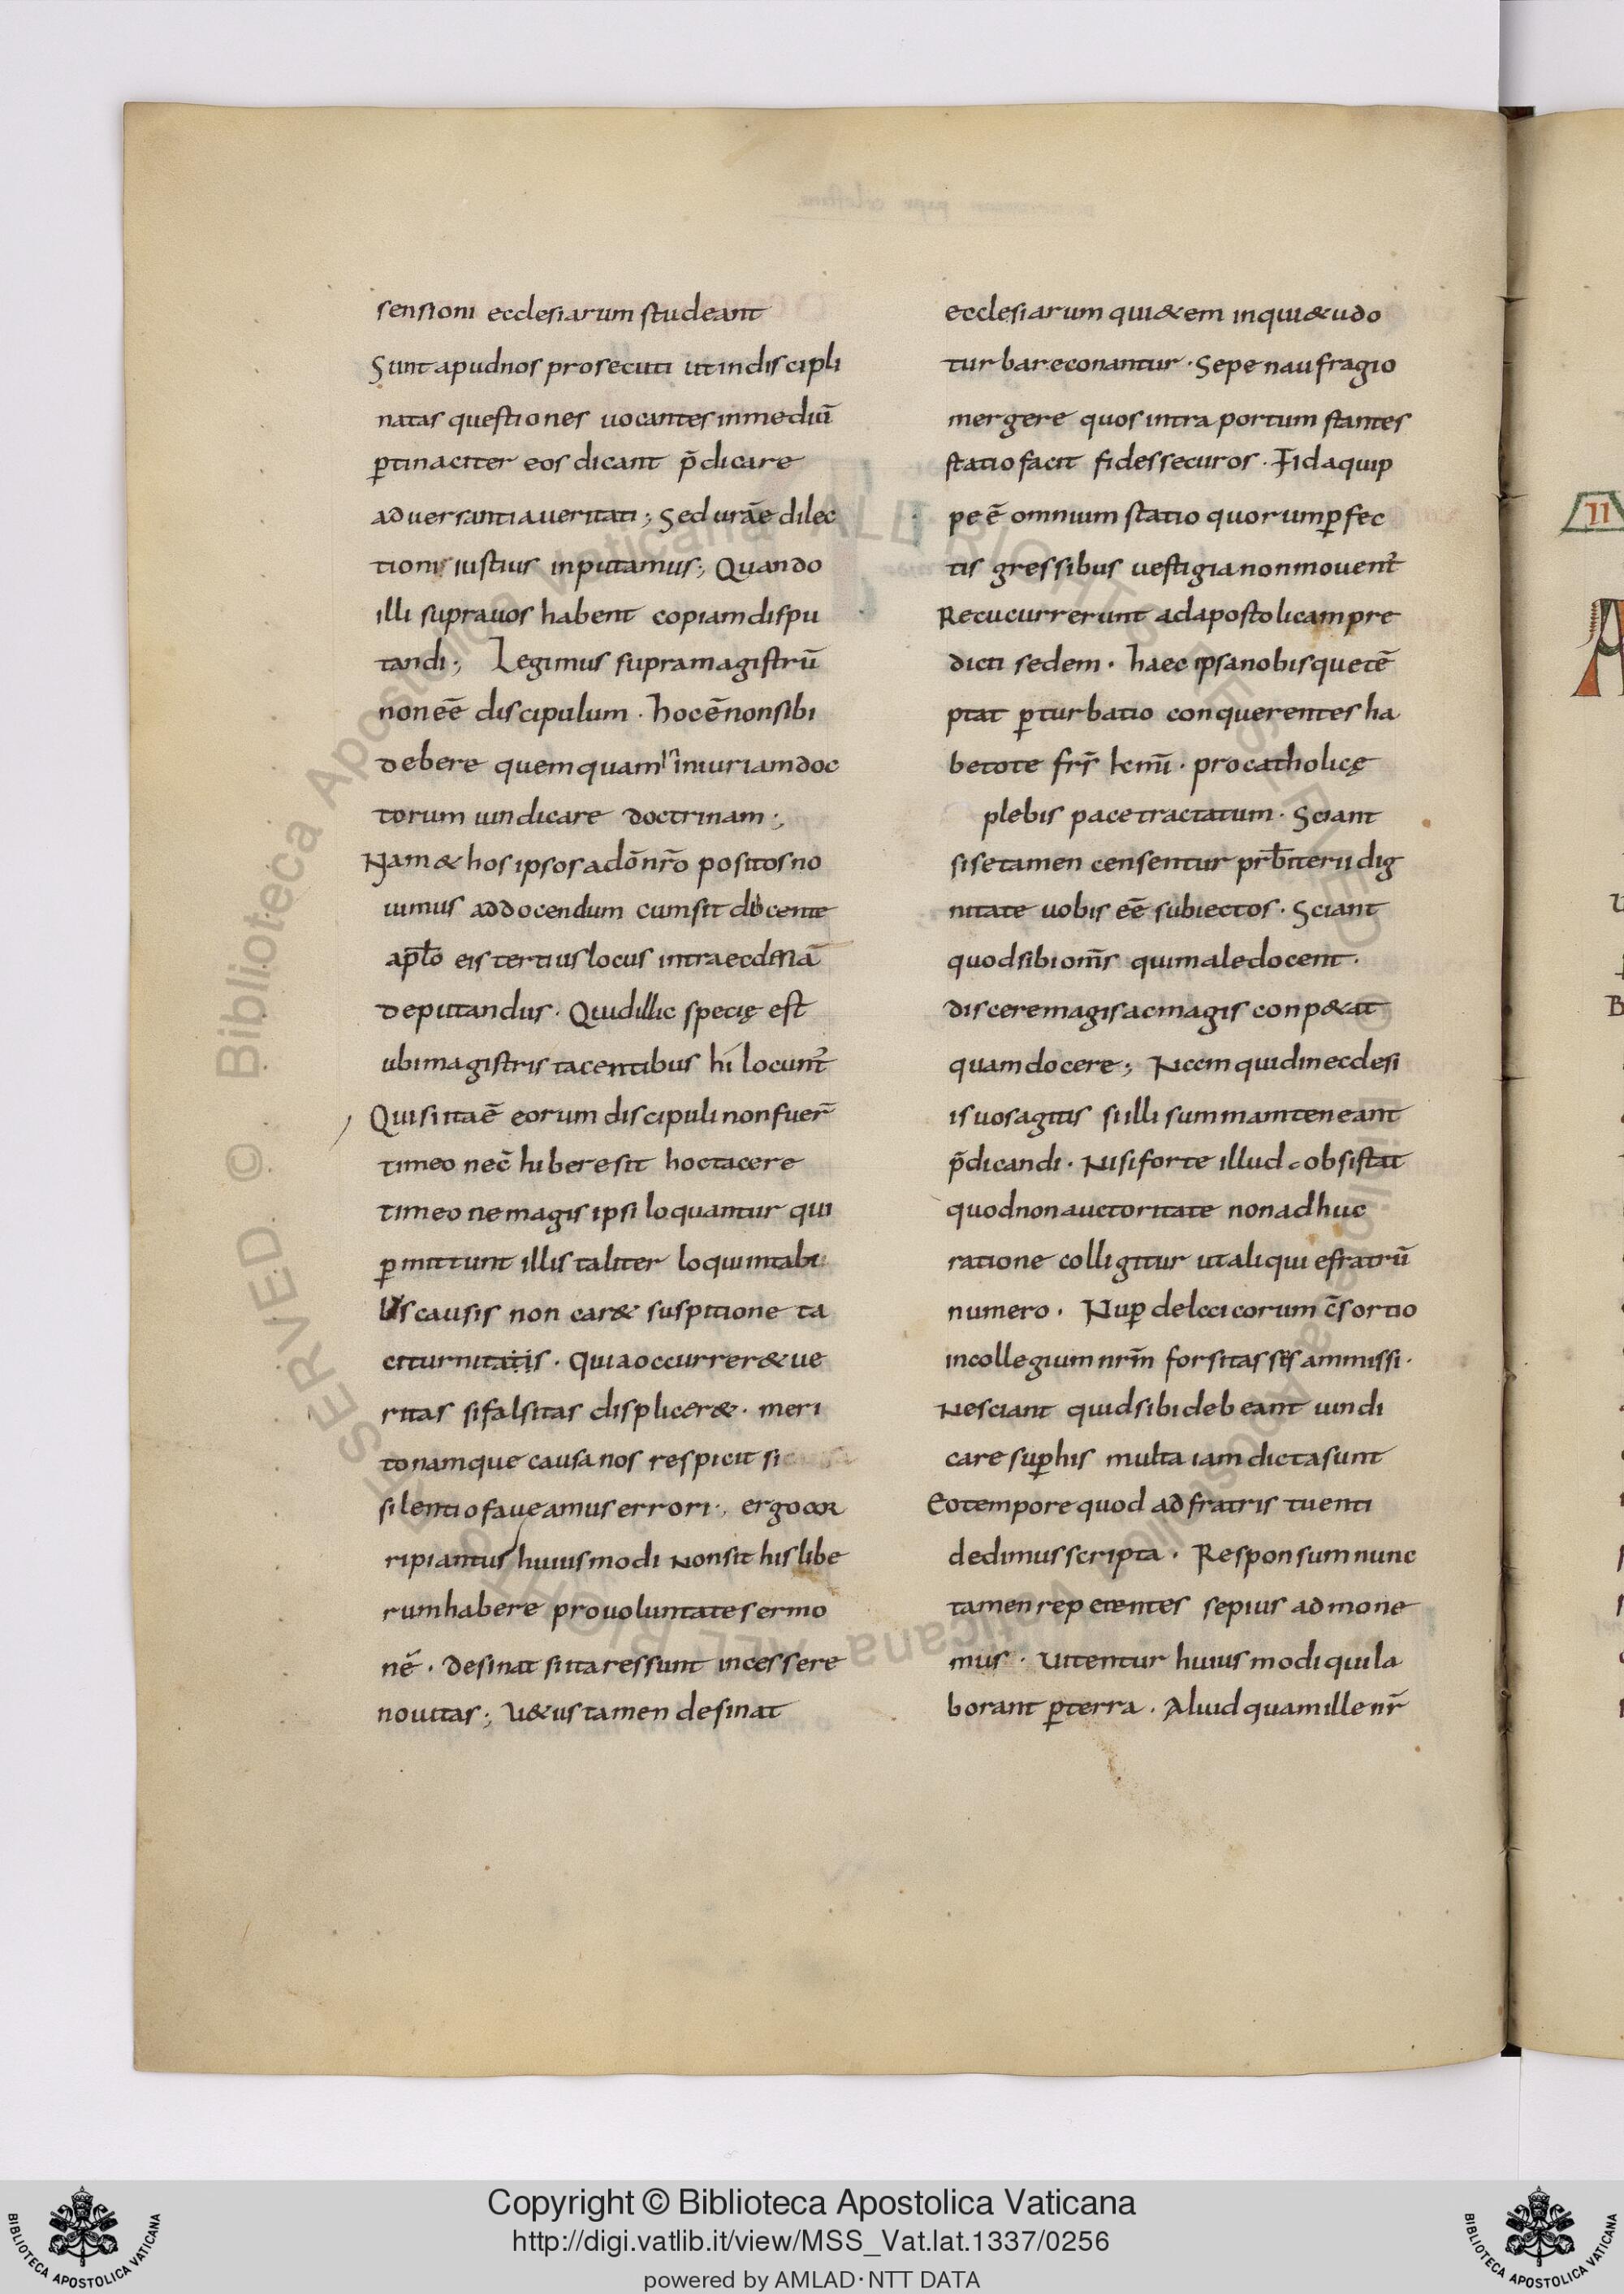 sensioni ecclesiarum studeant
Sunt apud nos prosecuti ut indiscipli
natas questiones uocantes in mediū
p̱tinaciter eos dicant p̄dicare
aduersantia ueritati; Sed urāe dilec
tioni iustius inputamus; Quando
illi supra uos habent copiam dispu
tandi; Legimus supra magistrū
non eē discipulum · hoc ē non sibi
debere quemquam in iniuriam doc
torum uindicare doctrinam;
Nam & hos ipsos a dō nr̄o positos no
uimus ad docendum cum sit docente
apl̄o eis tertius locus intra ecclesiā
deputandus · Quid illic specię est
ubi magistris tacentibus hi locunt̄
Qui si ita ē eorum discipuli non fuer̄
timeo nec̄ hiberesit hoc tacere
timeo ne magis ipsi loquantur qui
p̱mittunt illis taliter loqui intali
bus causis non car& suspitione ta
citurnitatis · Quia occurrer& ue
ritas si falsitas displicer& · meri
to namque causa nos respicit si
silentio faueamus errori; ergo cor
ripiantur huiusmodi Non sit his libe
rum habere pro uoluntate sermo
nē · Desinat si ita res sunt incessere
nouitas; U&us tamen desinat
ecclesiarum qui&em inqui&udo
turbare conantur · Sepe naufragio
mergere quos intra portum stantes
statio facit fides securos · Fida quip
pe ē omnium statio quorum p̱fec
tis gressibus uestigia non mouent̄
Recucurrerunt ad apostolicam pre
dicti sedem · haec ipsa nobis que tē
ptat p̱turbatio conquerentes ha
betote frr̄ km̄i · pro catholicę
plebis pace tractatum · Sciant
si se tamen censentur prb̄iterii dig
nitate uobis eē subiectos · Sciant
quod sibi om̄s qui male docent ·
discere magis ac magis conp&at
quam docere; Nam quid in ecclesi
is uos agitis si illi summam teneant
p̄dicandi · Nisi forte illud obsistat
quod non auctoritate non adhuc
ratione colligitur ut aliqui e fratrū
numero · Nup̱ de lcci corum c̄sortio
in collegium nr̄m forsitas sis ammissi ·
Nesciant quid sibi debeant uindi
care sup̱ his multa iam dicta sunt
Eo tempore quod ad fratris tuenti
dedimus scripta · Responsum nunc
tamen repetentes sepius admone
mus · Uitentur huiusmodi qui la
borant p̱ terra · Aliud quam ille nr̄
Copyright © Biblioteca Apostolica Vaticana
http://digi.vatlib.it/view/MSS_Vat.lat.1337/0256
powered by AMLAD·NTT DATA